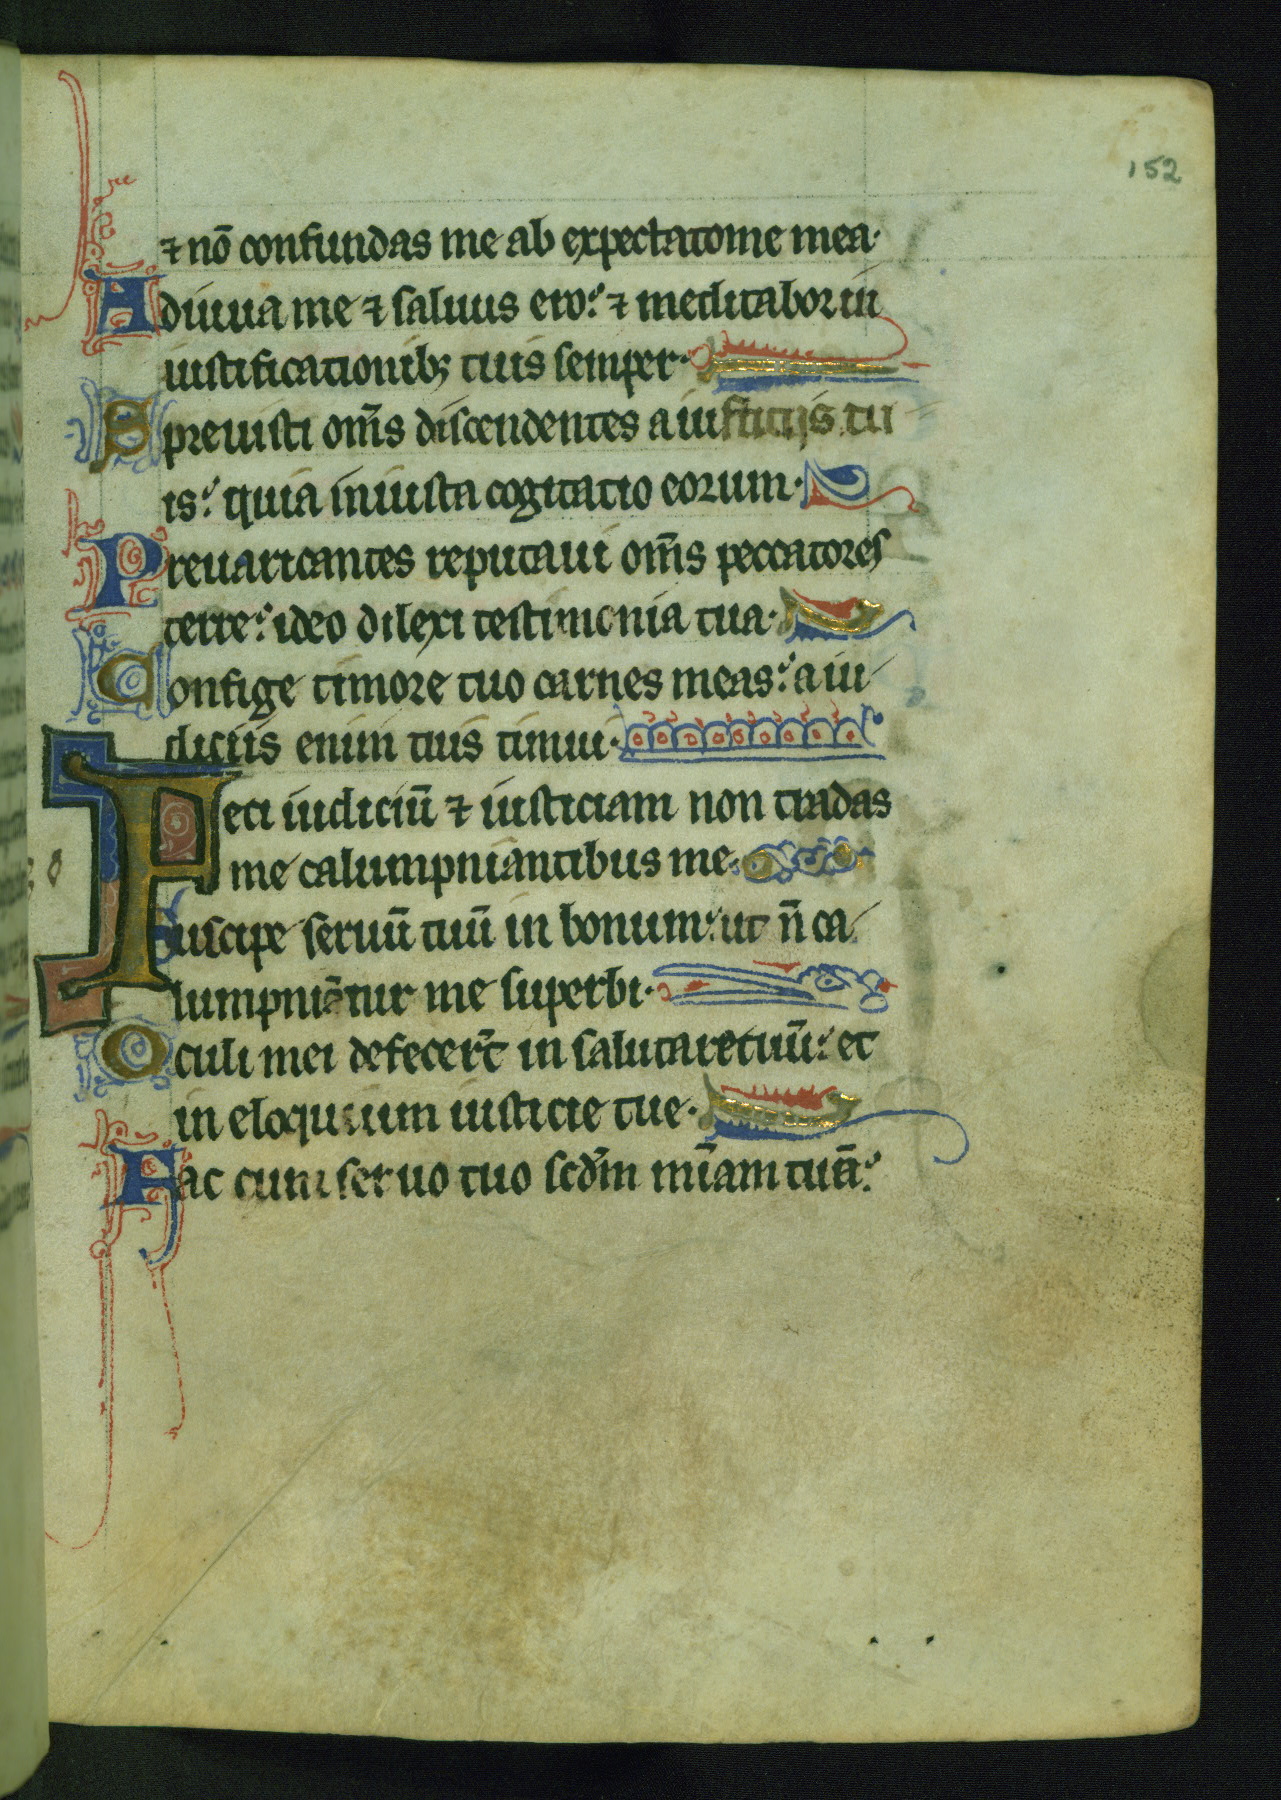 152
⁊ nō confundas me ab expectatione mea·
Adiuua me ⁊ saluus ero: ⁊ meditabor in
iustificationibꝫ tuis semper·
Spreuisti om̄s discendentes a iusticijs tu
is: quia iniusta cogitatio eorum·
Preuaricantes reputaui om̄s peccatores
terre: ideo dilexi testimonia tua·
Confige timore tuo carnes meas: a iu
diciis enim tuis timui·
Feci iudiciū ⁊ iusticiam non tradas
me calumpniantibus me·
Suscipe seruū tuū in bonum: ut n̄ ca
lumpniātur me superbi·
Oculi mei defecer̄t in salutare tuū: et
in eloquium iusticie tue·
Fac cum seruo tuo scd̄m mīam tuā: